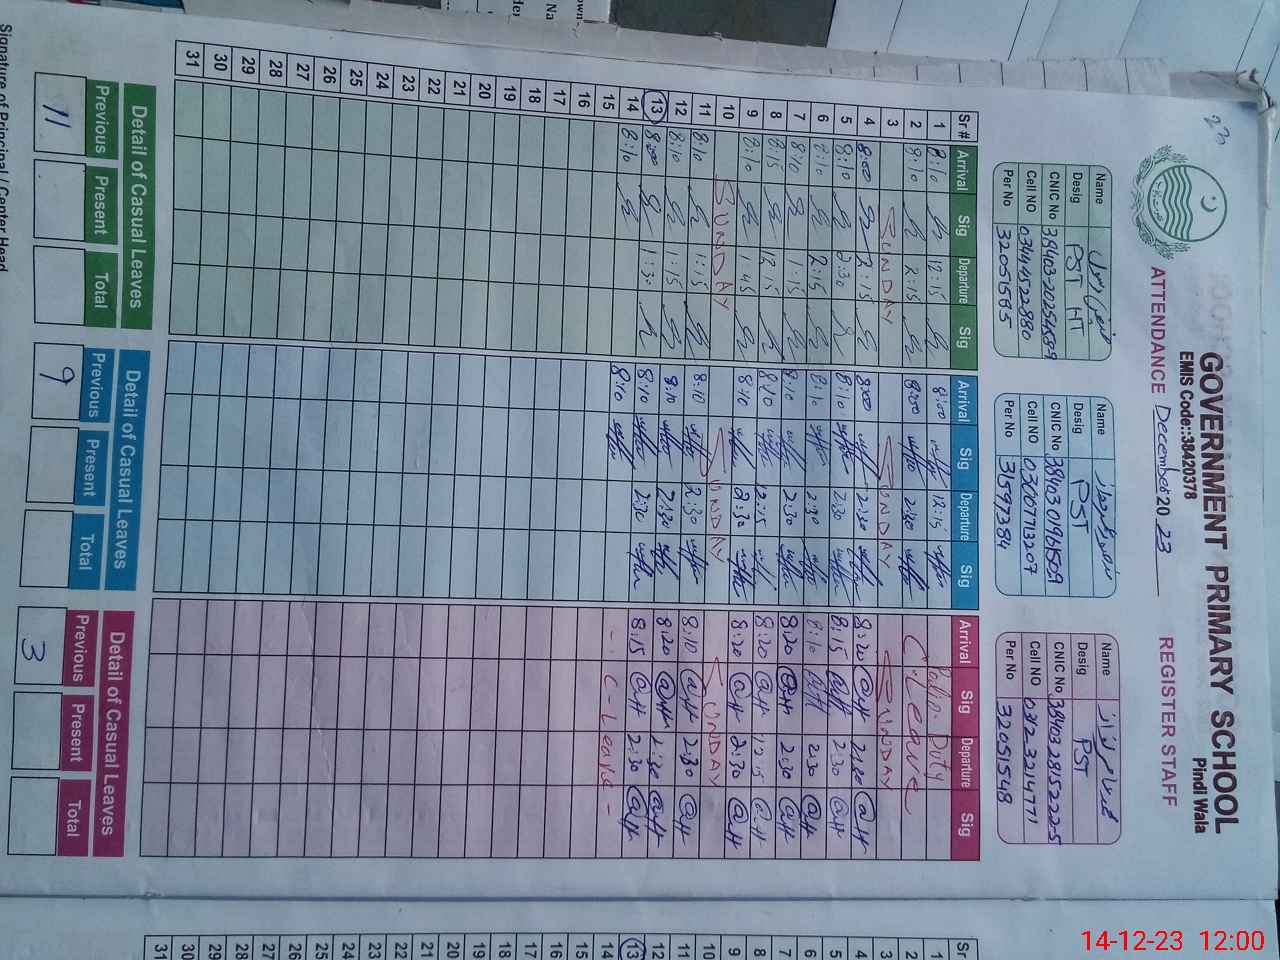 23
GOVERNMENT PRIMARY SCHOOL
EMIS Code::38420378
Pindi Wala
ATTENDANCE December 20 23
REGISTER STAFF
Name
Desig PST HT
CNIC No
Cell NO 03444522880
Per No 32051595
Name
Desig PST
CNIC No
Cell NO 03007713207
Per No 31597384
Name
Desig PST
CNIC No 38403 2815222-5
Cell NO
Per No 32051548
Sr# Arrival Sig Departure Sig Arrival Sig Departure Sig Arrival Sig Departure Sig
1 8:10 12:15 8:00 12:15 Polio Duty
2 8:10 2:15 8:00 2:30 C-Leave
3 SUNDAY SUNDAY SUNDAY
4 8:00 2:15 8:00 2:30 8:20 2:30
5 8:10 2:30 8:10 2:30 8:15 2:30
6 8:10 2:15 8:10 2:30 8:10 2:30
7 8:10 1:15 8:10 2:30 8:20 2:30
8 8:15 12:15 8:10 12:15 8:20 12:15
9 8:10 1:45 8:10 2:30 8:20 2:30
10 SUNDAY SUNDAY SUNDAY
11 8:10 1:15 8:10 2:30 8:10 2:30
12 8:10 1:15 8:10 2:30 8:20 1:30
13 8:00 1:30 8:10 2:30 8:15 2:30
14 8:10 8:10 - C-Leave -
15
16
17
18
19
20
21
22
23
24
25
26
27
28
29
30
31
Detail of Casual Leaves
Previous Present Total
11
Detail of Casual Leaves
Previous Present Total
9
Detail of Casual Leaves
Previous Present Total
3
Signature of Principal / Center Head
Sr
1
2
3
4
5
6
7
8
9
10
11
12
13
14
15
16
17
18
19
20
21
22
23
24
25
26
27
28
29
30
31
14-12-23 12:00